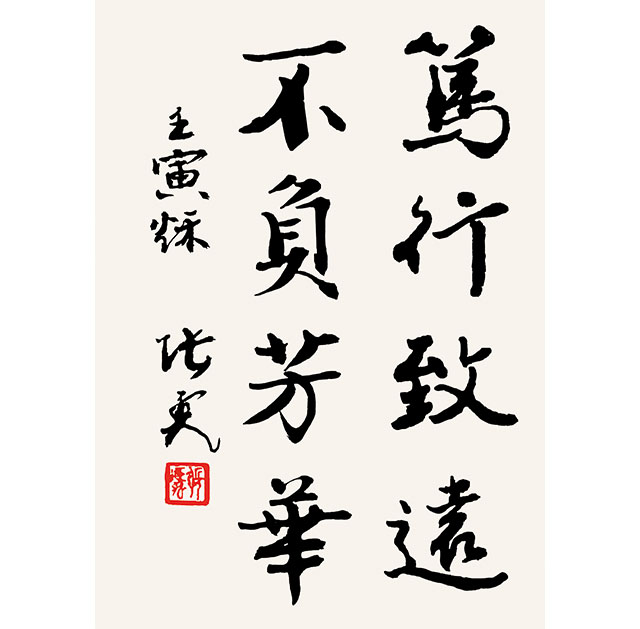 篤行致遠
不負芳華
壬寅秋
张